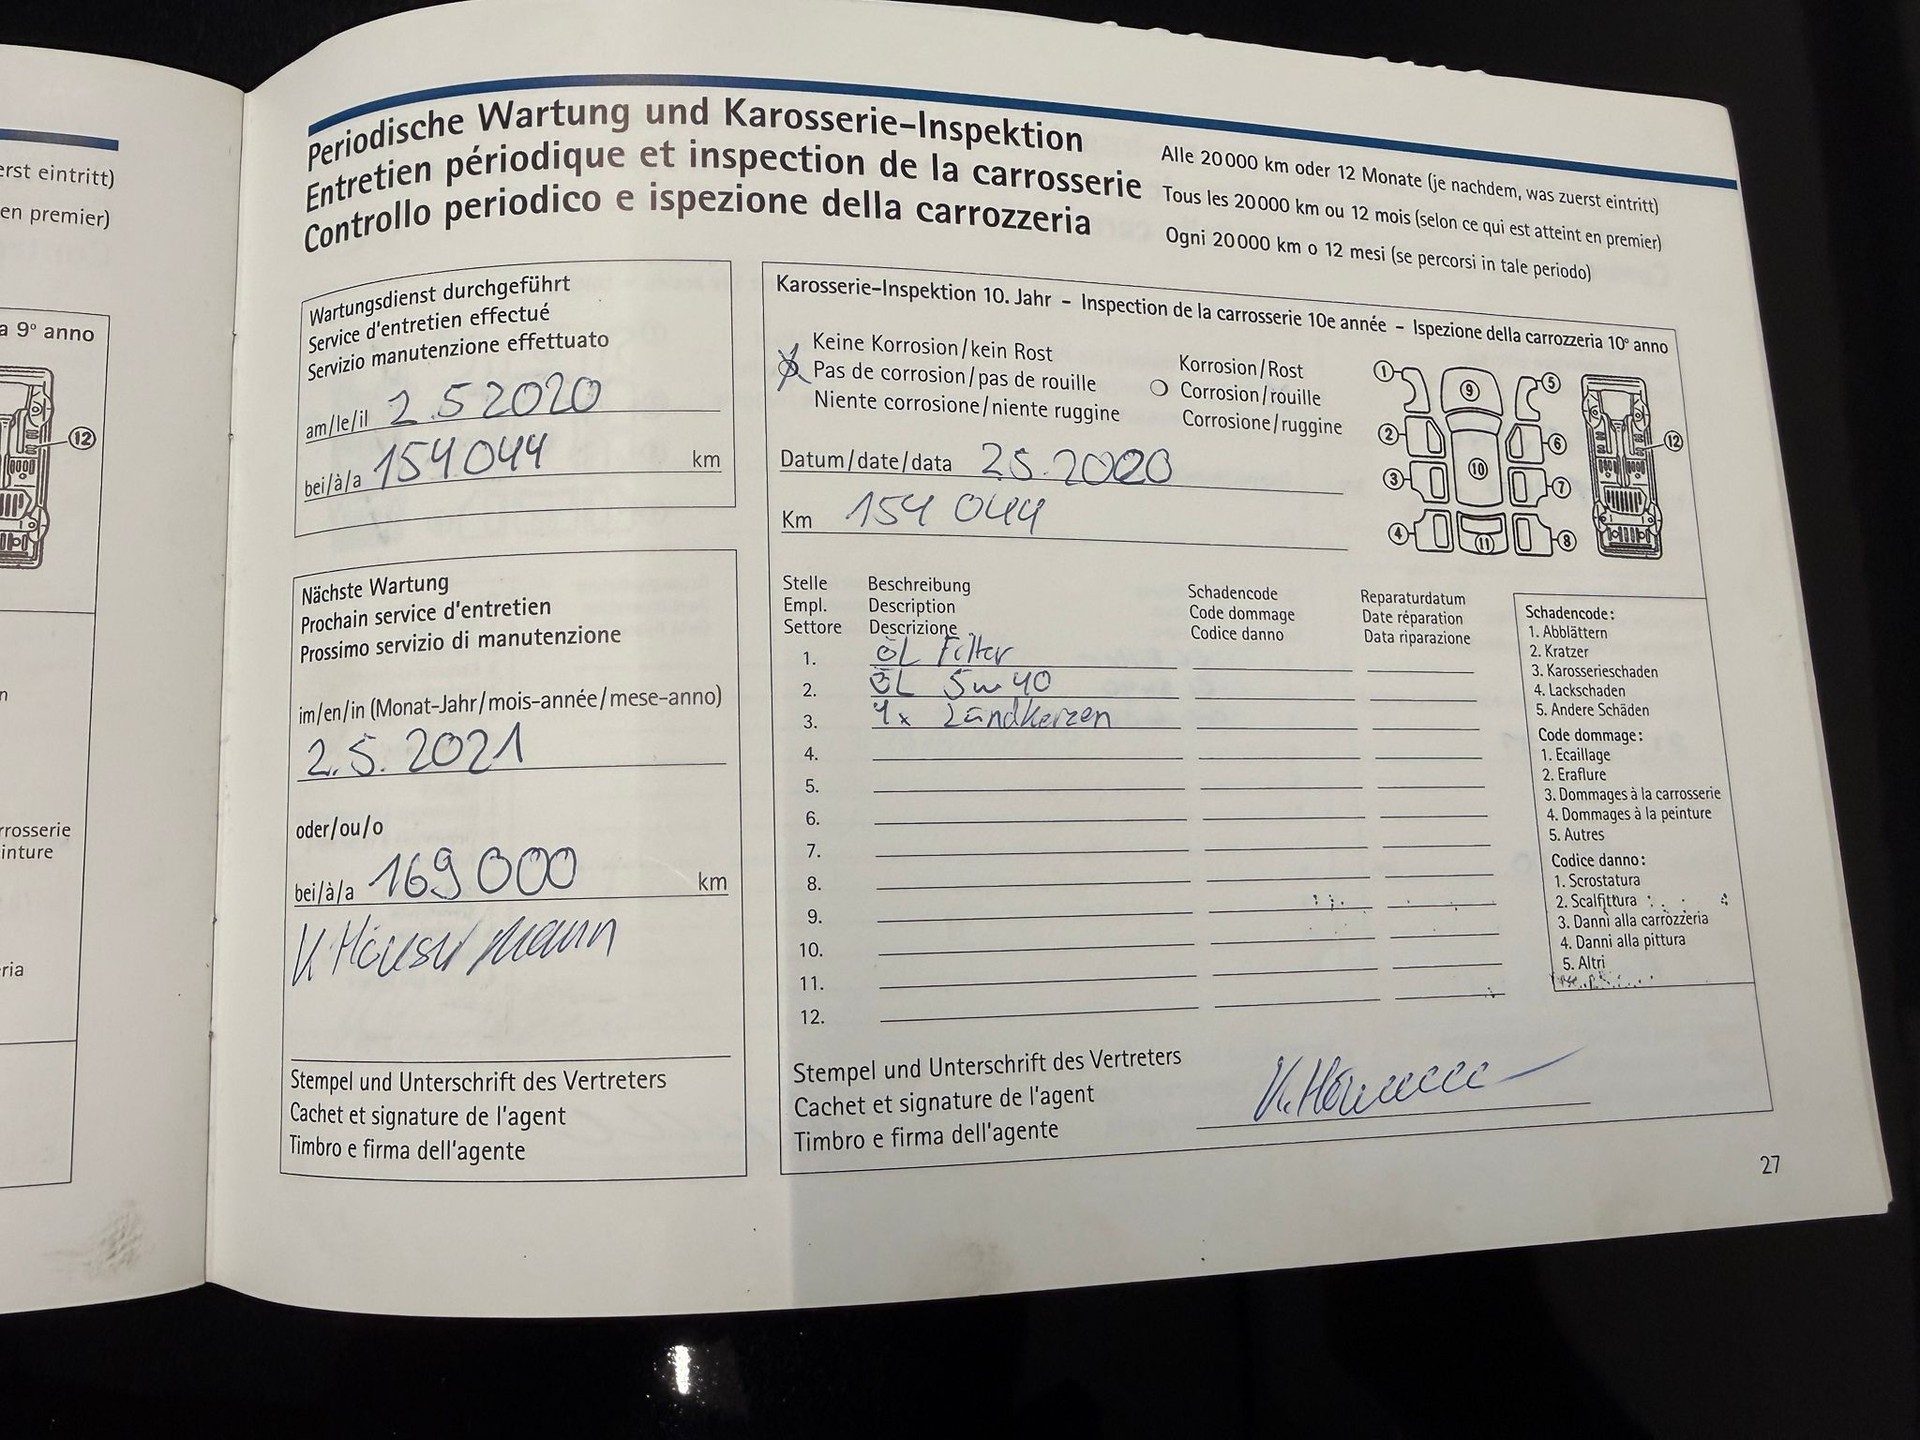 erst eintritt)
en premier)
a 9° anno
12
n
rrosserie
inture
ria
Periodische Wartung und Karosserie-Inspektion
Entretien périodique et inspection de la carrosserie
Controllo periodico e ispezione della carrozzeria
Alle 20 000 km oder 12 Monate (je nachdem, was zuerst eintritt)
Tous les 20 000 km ou 12 mois (selon ce qui est atteint en premier)
Ogni 20 000 km o 12 mesi (se percorsi in tale periodo)
Wartungsdienst durchgeführt
Service d'entretien effectué
Servizio manutenzione effettuato
am/le/il 2.5 2020
bei/à/a 154 044 km
Nächste Wartung
Prochain service d'entretien
Prossimo servizio di manutenzione
im/en/in (Monat-Jahr/mois-année/mese-anno)
2.5.2021
oder/ou/o
bei/à/a 169 000 km
Stempel und Unterschrift des Vertreters
Cachet et signature de l'agent
Timbro e firma dell'agente
Karosserie-Inspektion 10. Jahr – Inspection de la carrosserie 10e année – Ispezione della carrozzeria 10° anno
Keine Korrosion/kein Rost
Pas de corrosion/pas de rouille
Niente corrosione/niente ruggine
Korrosion/Rost
Corrosion/rouille
Corrosione/ruggine
Datum/date/data 2.5.2020
Km 154 044
1 9 5
2 6
3 10 7
4 11 8
12
Stelle Beschreibung Schadencode Reparaturdatum
Empl. Description Code dommage Date réparation
Settore Descrizione Codice danno Data riparazione
1. ÖL Filter
2. ÖL 5w40
3. 4x Zündkerzen
4.
5.
6.
7.
8.
9.
10.
11.
12.
Schadencode:
1. Abblättern
2. Kratzer
3. Karosserieschaden
4. Lackschaden
5. Andere Schäden
Code dommage:
1. Ecaillage
2. Eraflure
3. Dommages à la carrosserie
4. Dommages à la peinture
5. Autres
Codice danno:
1. Scrostatura
2. Scalfittura
3. Danni alla carrozzeria
4. Danni alla pittura
5. Altri
Stempel und Unterschrift des Vertreters
Cachet et signature de l'agent
Timbro e firma dell'agente
27